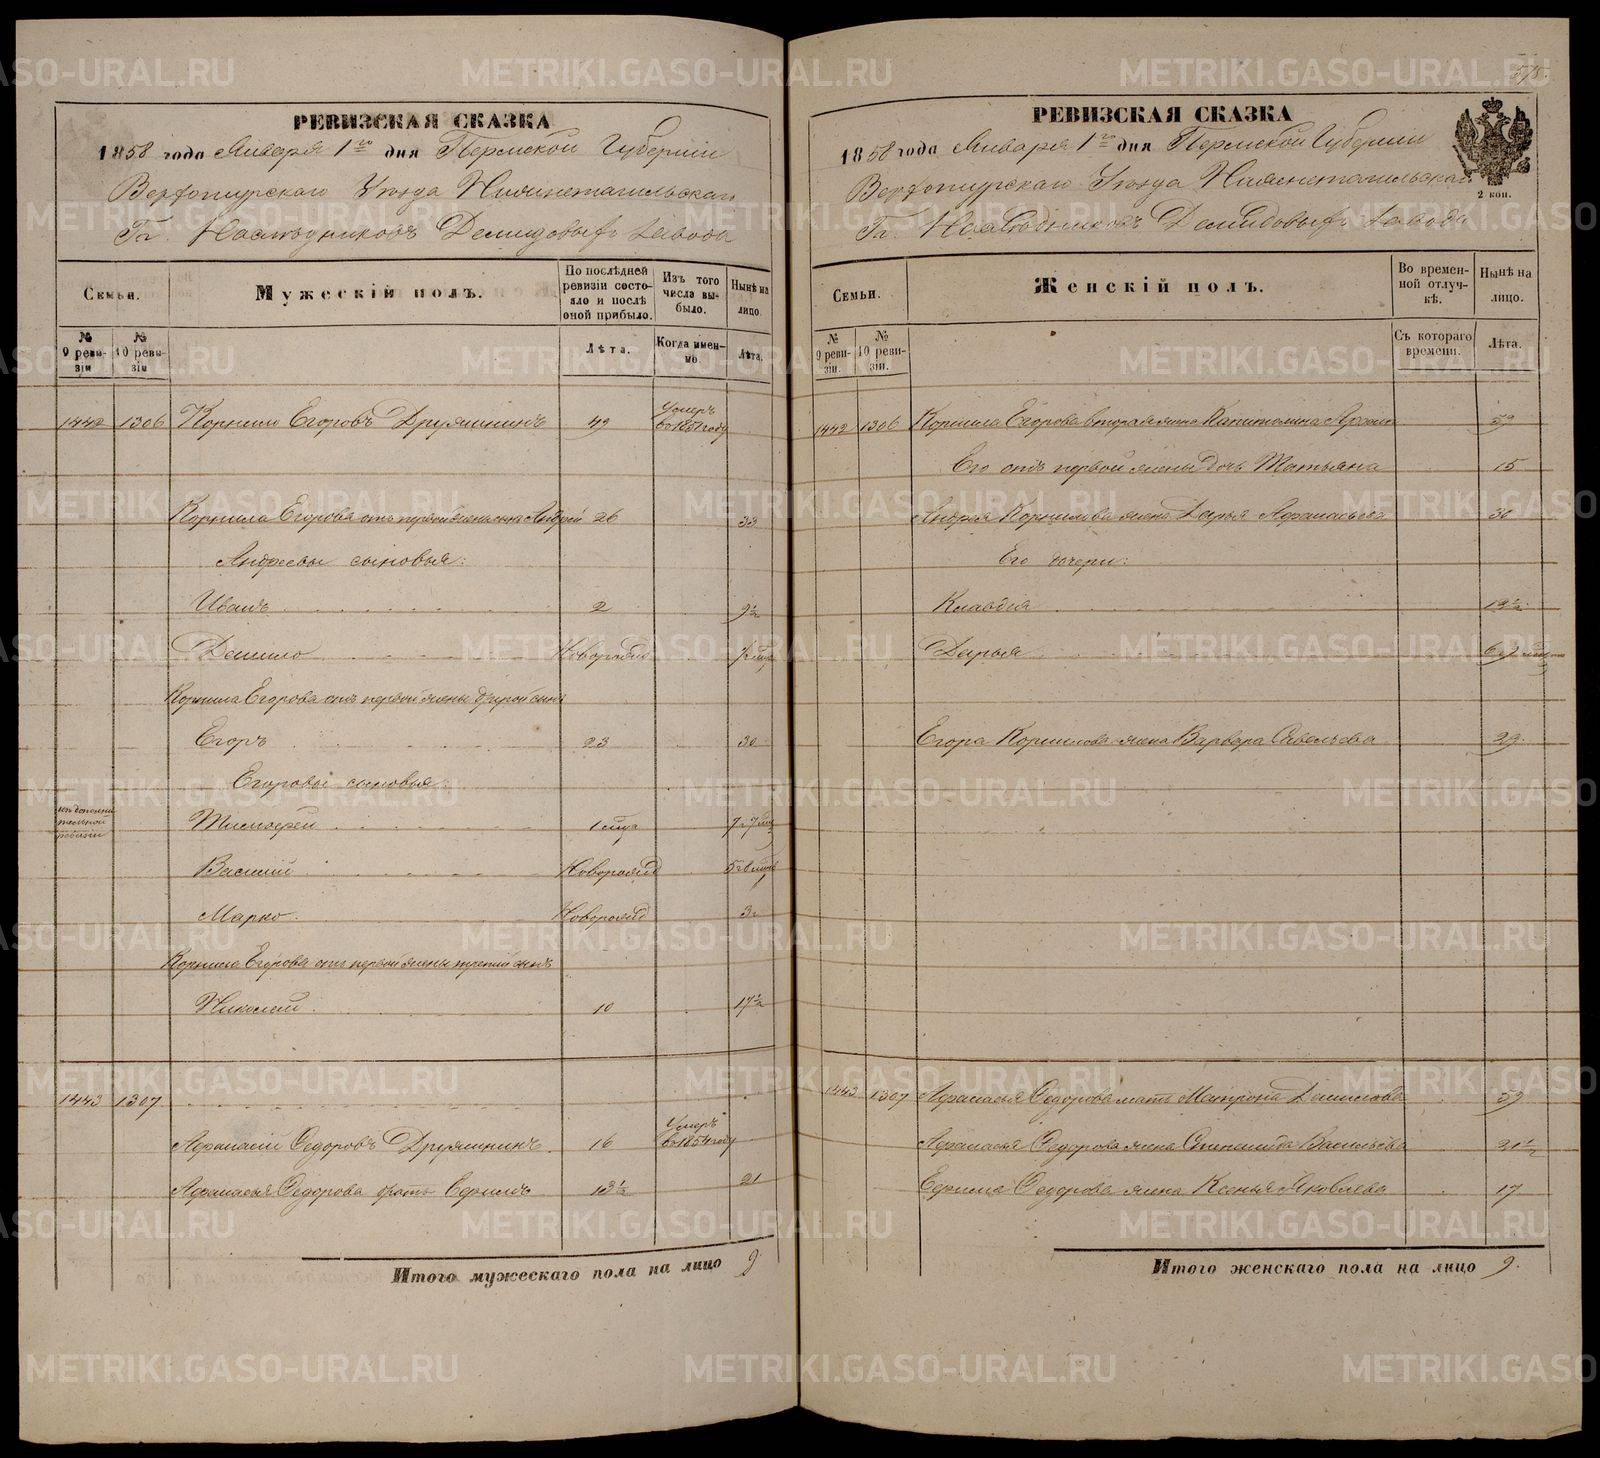 РЕВИЗСКАЯ СКАЗКА
1858 года Января 1го дня Пермской Губернии
Верхотурскаго Уезда Нижнетагильскаго
Гг. Наследниковъ Демидовыхъ завода
Семьи.
Мужескій полъ.
По послѣдней ревизіи состояло и послѣ оной прибыло.
Изъ того числа выбыло.
Нынѣ на лицо.
№ 9 ревизіи
№ 10 ревизіи
Лѣта.
Когда именно.
Лѣта.
1442 1306 Корнило Егоровъ Дружининъ 49 Умеръ въ 1851 году
Корнила Егорова отъ первой жены сынъ Андрей 26 33
Андреевы сыновья:
Иванъ 2 9½
Данило Новорожд
Корнила Егорова отъ первой жены другой сынъ
Егоръ 23 30
Егоровы сыновья:
изъ дополнительной ревизіи
Тимофей 1 мца 7 г 7 мц
Василий Новорожд
Марко Новорожд 3 г
Корнила Егорова отъ первой жены третий сынъ
Николай 10 17½
1443 1307
Афанасий Федоровъ Дружининъ 16 Умеръ въ 1854 году
Афанасья Федорова братъ Ефимъ 13½ 21
Итого мужескаго пола на лицо 9
575.
РЕВИЗСКАЯ СКАЗКА
1858 года Января 1го дня Пермской Губернии
Верхотурскаго Уезда Нижнетагильскаго
Гг. Наследниковъ Демидовыхъ завода
2 коп.
Семьи.
Женскій полъ.
Во временной отлучкѣ.
Нынѣ на лицо.
№ 9 ревизіи.
№ 10 ревизіи.
Съ котораго времени.
Лѣта.
1442 1306 Корнила Егорова вторая жена Капитолина 59
Его отъ первой жены дочь Татьяна 15
Андрея Корнилова жена Дарья Афанасьева 30
Его дочери:
Клавдия 12½
Дарья
Егора Корнилова жена Варвара Савельева 29
1443 1307 Афанасья Федорова мать Матрона Данилова 59
Афанасья Федорова жена Степанида Васильева 21½
Ефима Федорова жена Ксенья Яковлева 17
Итого женскаго пола на лицо 9.
METRIKI.GASO-URAL.RU